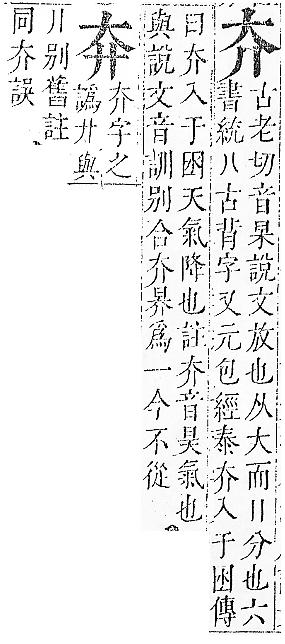 夰
古老切音杲說文放也从大而八分也六
書統八古背字又元包經泰夰入于囦傳
曰夰入于囦天氣降也註夰音昊氣也
與說文音訓別合夰昦爲一今不從
夰字之
譌廾與
八别舊註
同夰誤